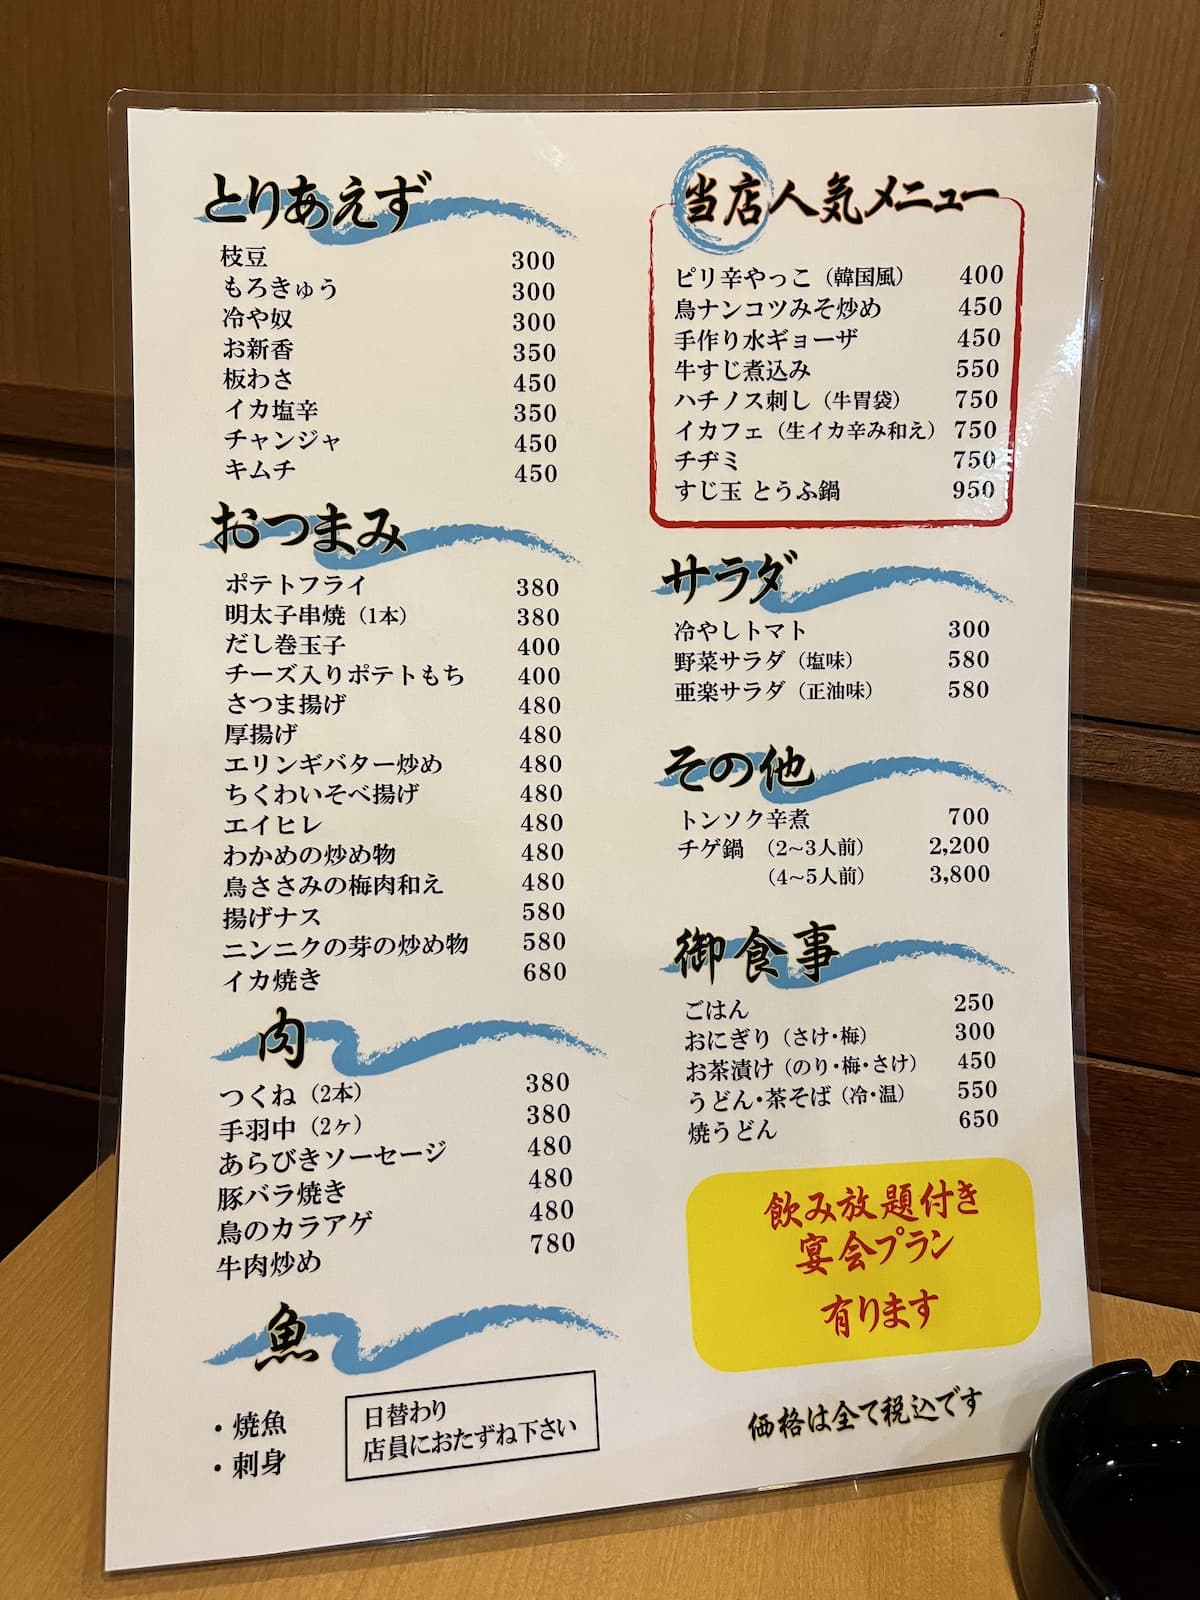 とりあえず
枝豆 300
もろきゅう 300
冷や奴 300
お新香 350
板わさ 450
イカ塩辛 350
チャンジャ 450
キムチ 450
おつまみ
ポテトフライ 380
明太子串焼(1本) 380
だし巻玉子 400
チーズ入りポテトもち 400
さつま揚げ 480
厚揚げ 480
エリンギバター炒め 480
ちくわいそべ揚げ 480
エイヒレ 480
わかめの炒め物 480
鳥ささみの梅肉和え 480
揚げナス 580
ニンニクの芽の炒め物 580
イカ焼き 680
肉
つくね(2本) 380
手羽中(2ヶ) 380
あらびきソーセージ 480
豚バラ焼き 480
鳥のカラアゲ 480
牛肉炒め 780
魚
・焼魚
・刺身
日替わり
店員におたずね下さい
当店人気メニュー
ピリ辛やっこ(韓国風) 400
鳥ナンコツみそ炒め 450
手作り水ギョーザ 450
牛すじ煮込み 550
ハチノス刺し(牛胃袋) 750
イカフェ(生イカ辛み和え) 750
チヂミ 750
すじ玉 とうふ鍋 950
サラダ
冷やしトマト 300
野菜サラダ(塩味) 580
亜楽サラダ(正油味) 580
その他
トンソク辛煮 700
チゲ鍋 (2〜3人前) 2,200
(4〜5人前) 3,800
御食事
ごはん 250
おにぎり(さけ・梅) 300
お茶漬け(のり・梅・さけ) 450
うどん・茶そば(冷・温) 550
焼うどん 650
飲み放題付き
宴会プラン
有ります
価格は全て税込です